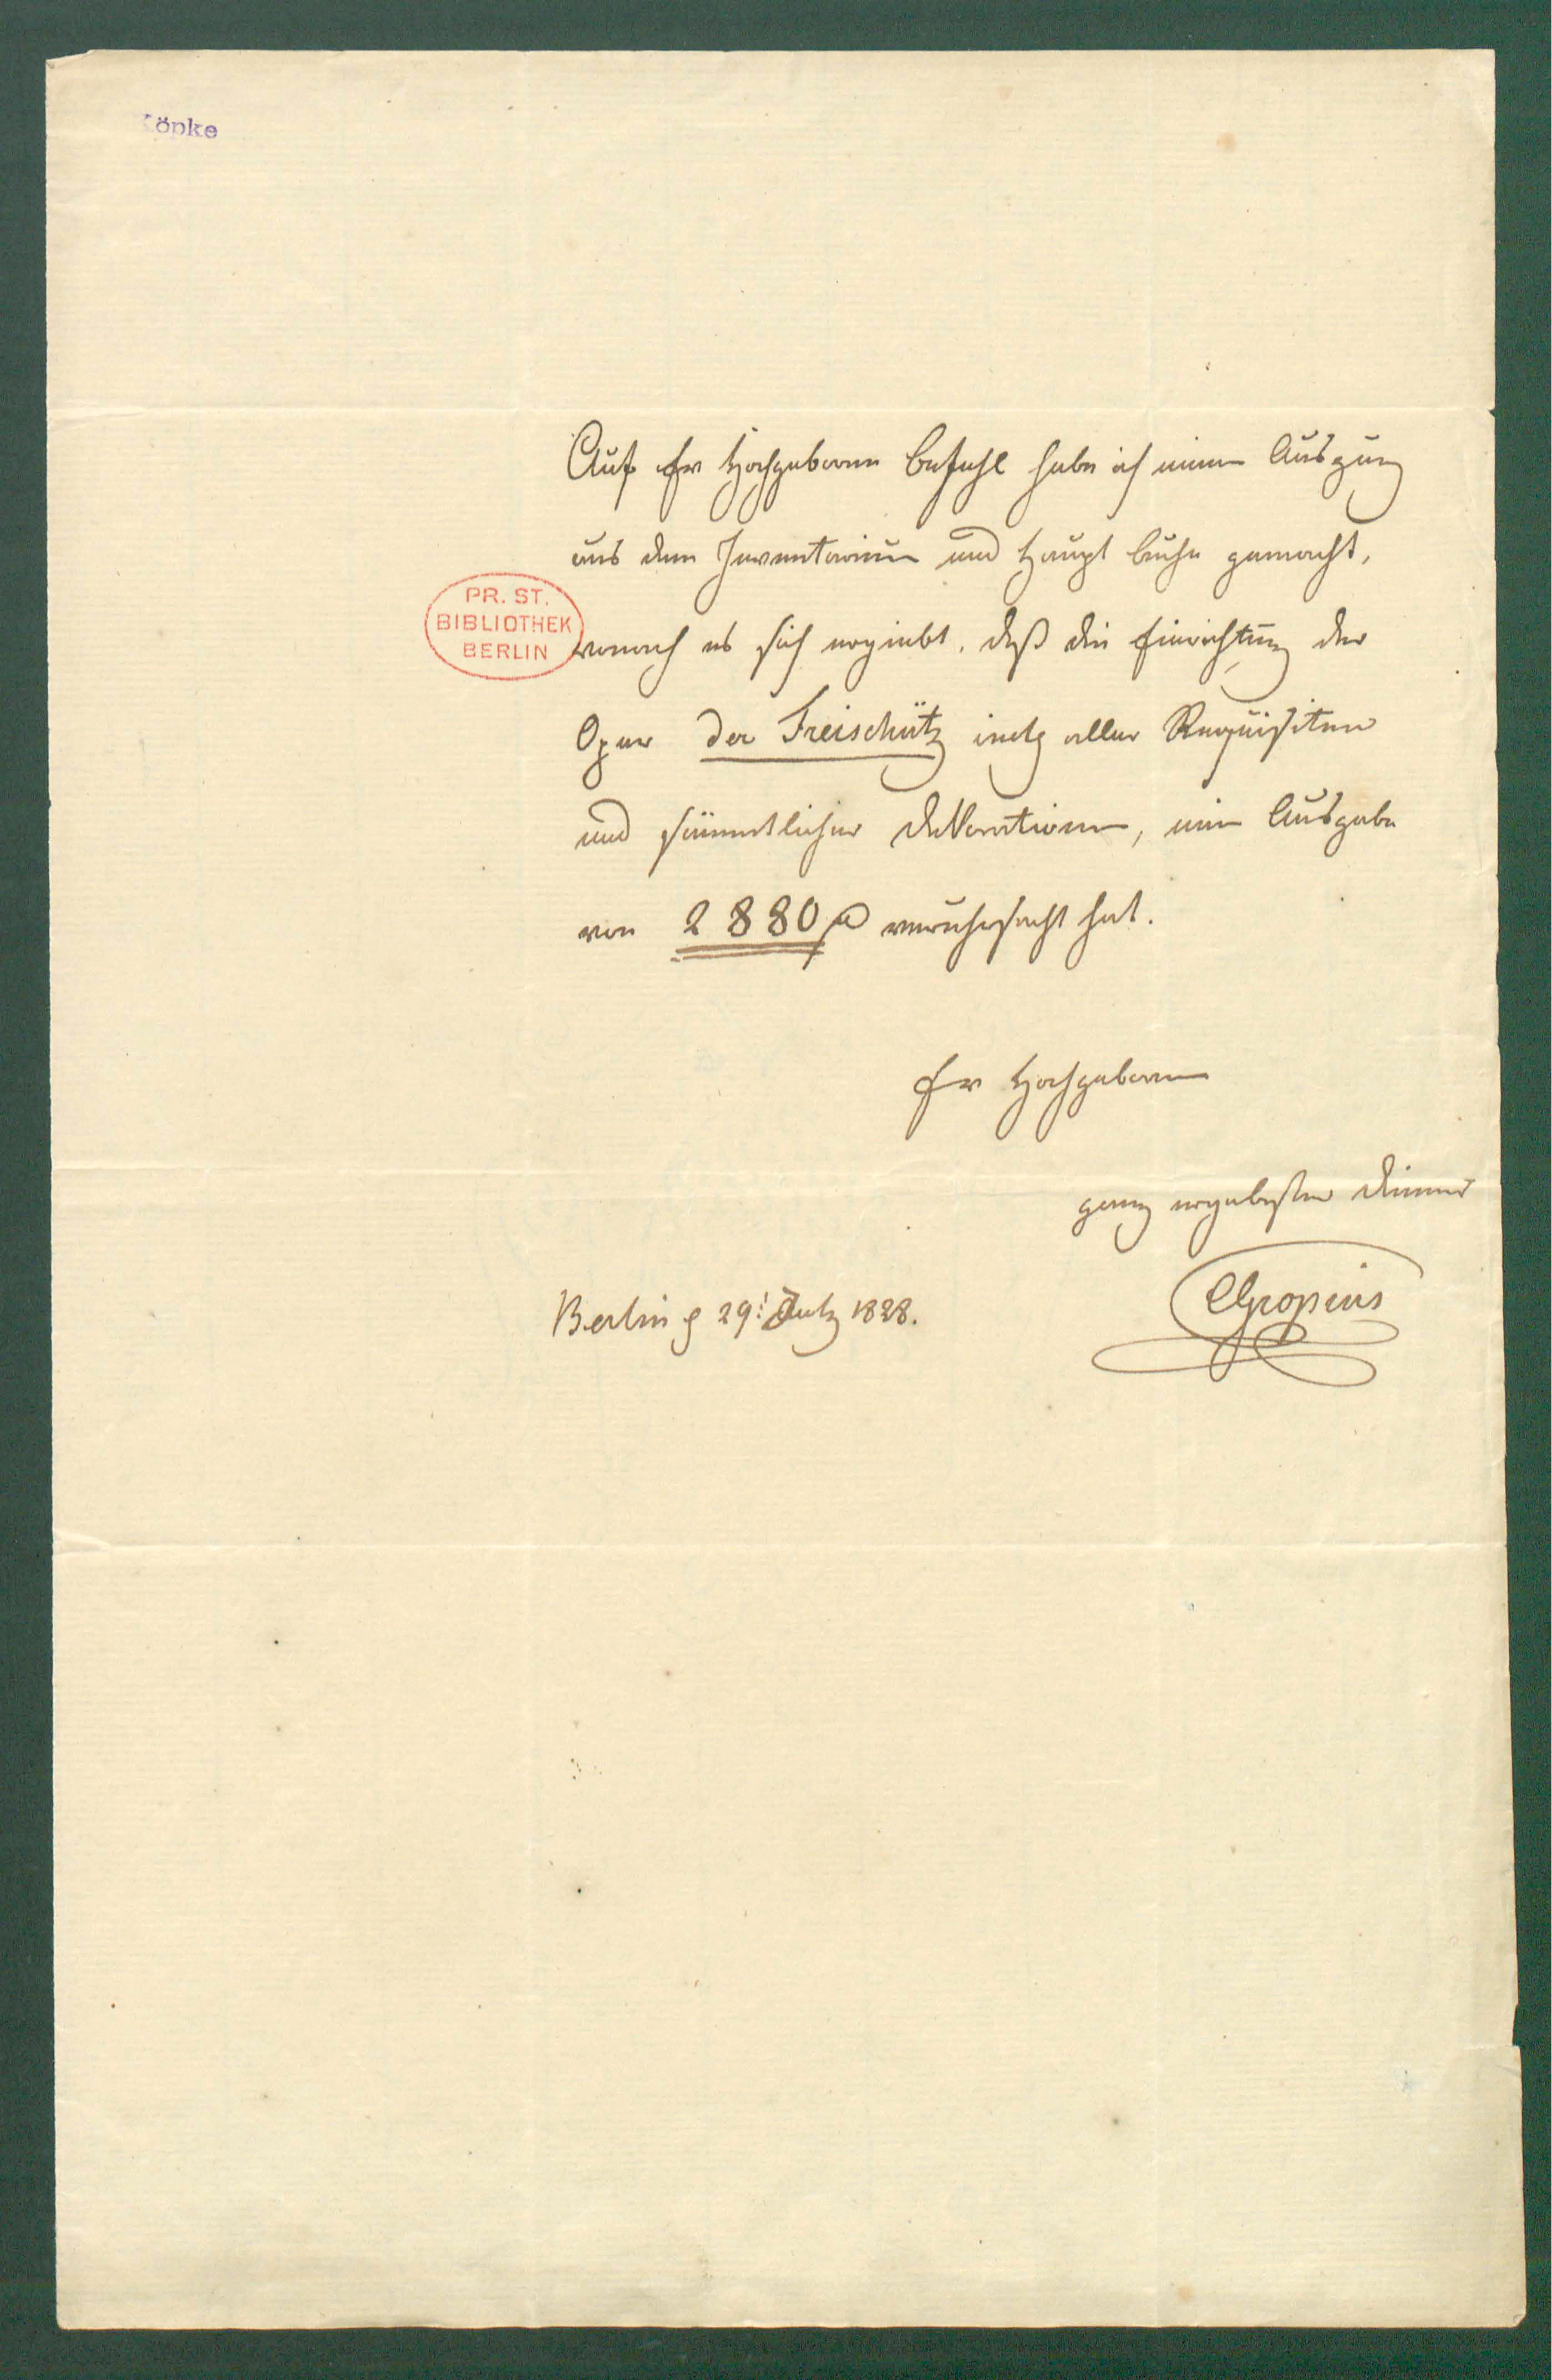 Köpke
Auf Ew Hochgeboren Befehl habe ich einen Auszug
aus dem Inventarium und Haupt buche gemacht,
PR. ST.
BIBLIOTHEK
BERLIN
wonach es sich ergiebt, daß die Einrichtung der
Oper Der Freischütz incl aller Requisiten
und sämmtlicher Dekorationen, eine Ausgabe
von 2880 verursacht hat.
Ew Hochgeboren
ganz ergebenster Diener
CGropius
Berlin d 29t July 1828.